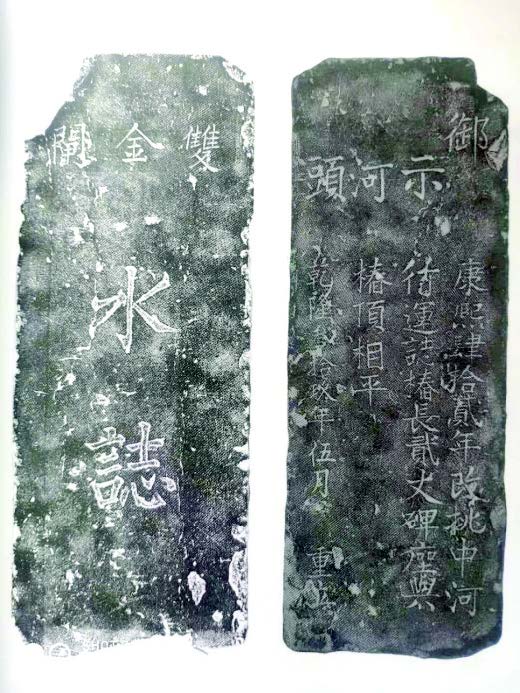 雙金閘
水
誌
御
示河頭
康熙肆拾貳年改挑中河
俻運誌椿長貳丈碑座與
椿頂相平
乾隆拾年伍月 重